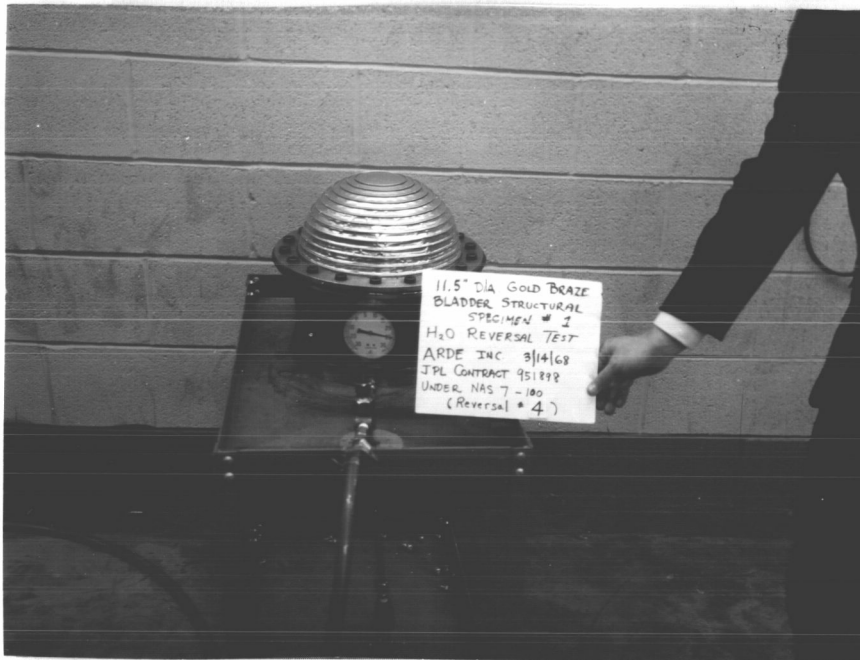 11.5" DIA GOLD BRAZE
BLADDER STRUCTURAL
SPECIMEN # 1
H₂O REVERSAL TEST
ARDE INC 3/14/68
JPL CONTRACT 951898
UNDER NAS 7-100
(Reversal # 4)